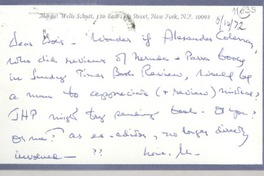 Wells Schutt, 120 East Street, New York, N.Y. 10003
11633
5/12/72
Dear Bois - Wonder if Alexander Coleman,
who did reviews of Neruda + Parra books
in Sunday Times Book Review, would be
a man to appreciate (+ review) mindeed,
JHP might try sending book. Do you?
Or me? as ex-editor, no longer directly
involved — ??